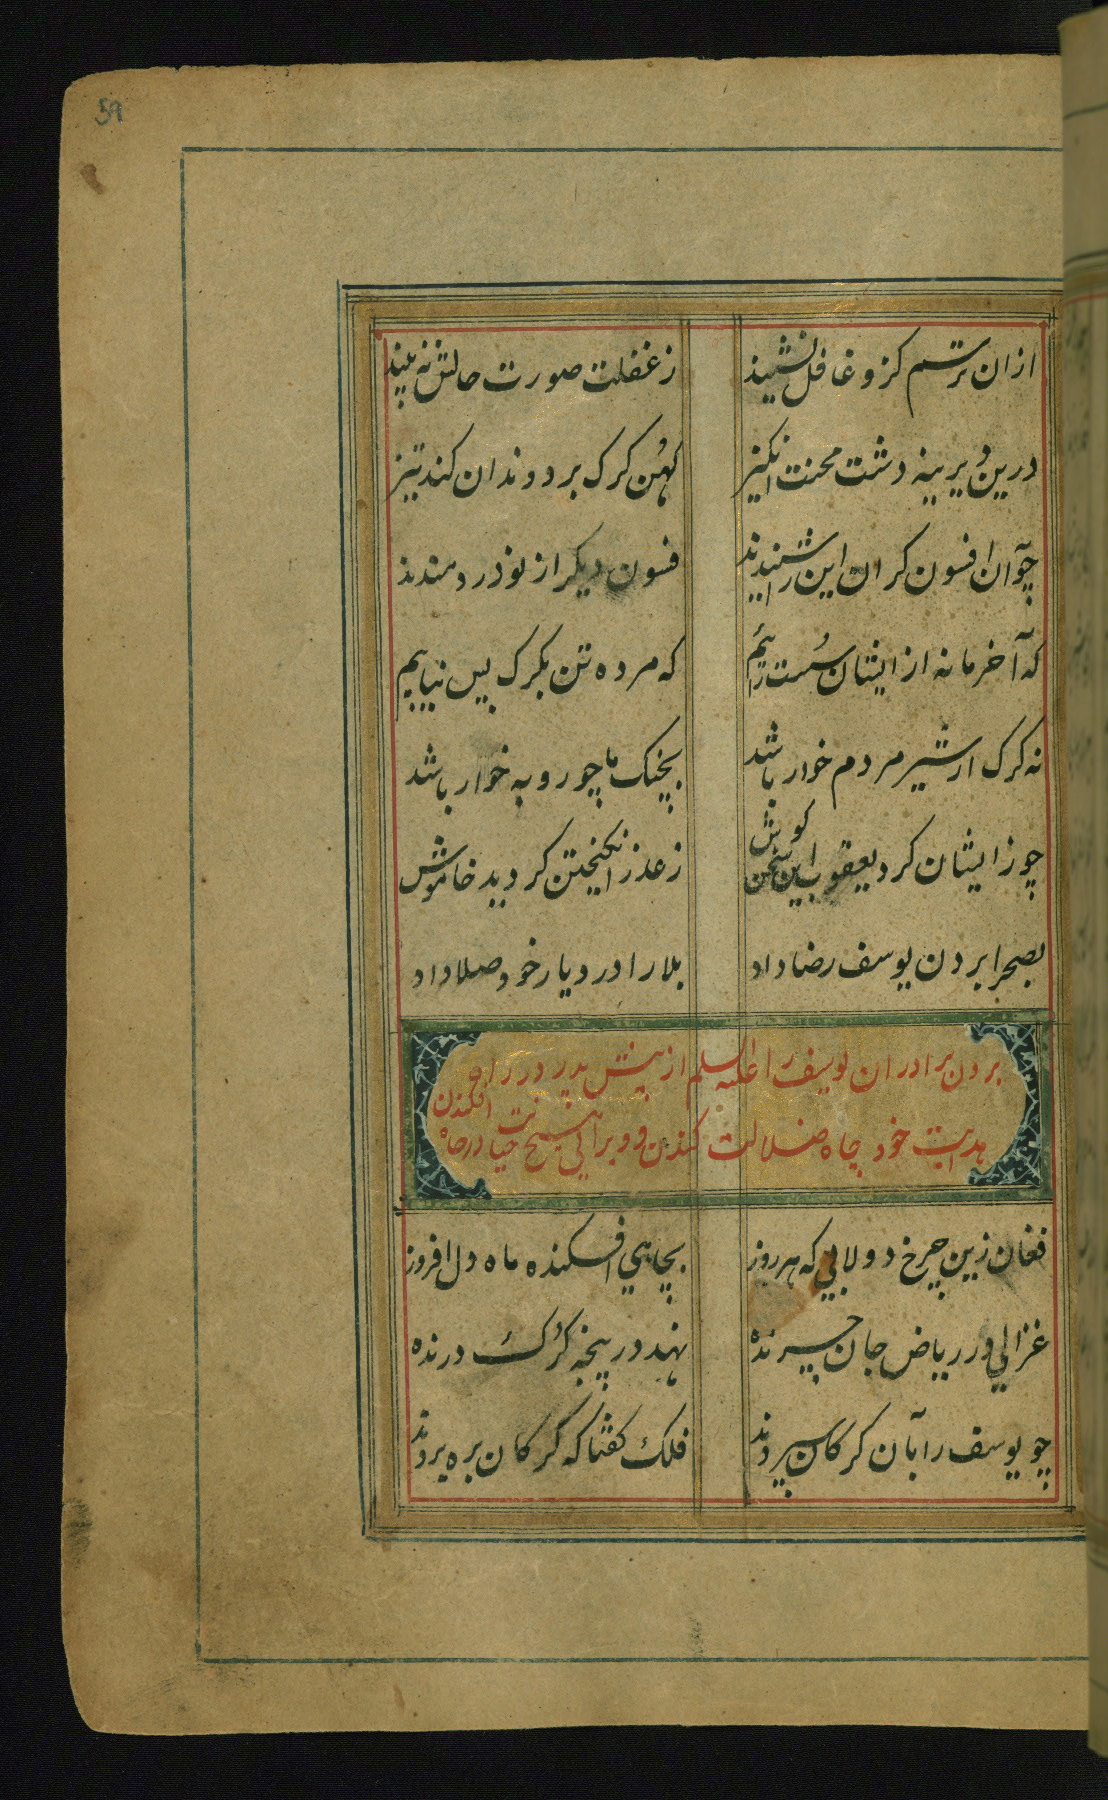 59
ازان ترسم کزو غافل نشیند    ز غفلت صورت حالش نه بیند
درین دیرینه دشت محنت انکیز    کهن کرک برو دندان کند تیز
چو آن افسون کران این را شنیدند    فسون دیکر از نو در دمیدند
که آخر ما نه از ایشان سست رائیم    که مرده تن بکرک بس نیاییم
نه کرک ار شیر مردم خوار باشد    بچنک ما چو روبه خوار باشد
چو زایشان کرد یعقوب این سخن کوش    ز عذر انکیختن کردید خاموش
بصحرا بردن یوسف رضا داد    بلا را در دیار خود صلا داد
بردن برادران یوسف را علیه السلم از پیش پدر و در راه
هدایت خود چاه ضلالت کندن و ویرا در چاه افکندن
فغان زین چرخ دولابی که هر روز    بچاهی افکنده ماه دل افروز
غزالی در ریاض جان چرنده    نهد در پنجه کرک درنده
چو یوسف را بآن کرکان سپردند    فلک کفتا که کرکان بره بردند